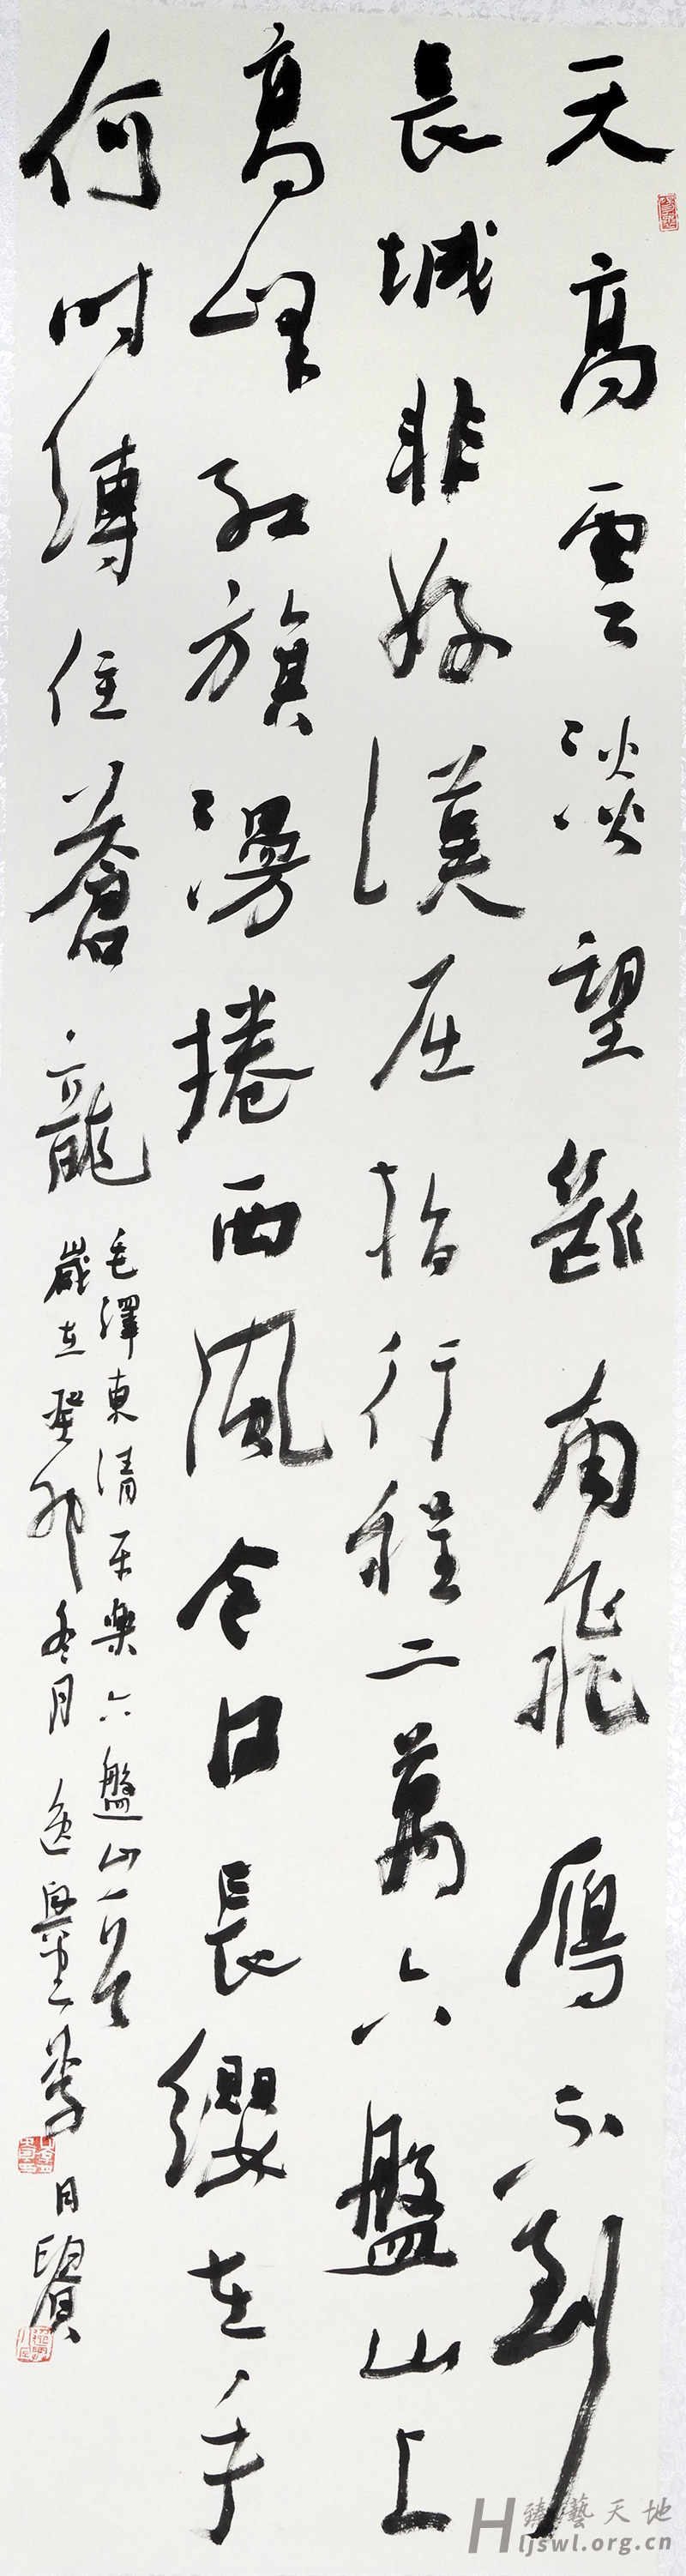 天高雲淡望斷南飛鴈不到
長城非好漢屈指行程二萬六盤山上
高峰紅旗漫捲西風今日長纓在手
何時縛住蒼龍
毛澤東清平樂六盤山一首
歲在癸卯冬月 逸 李
H 臻藝天地
ljswl.org.cn